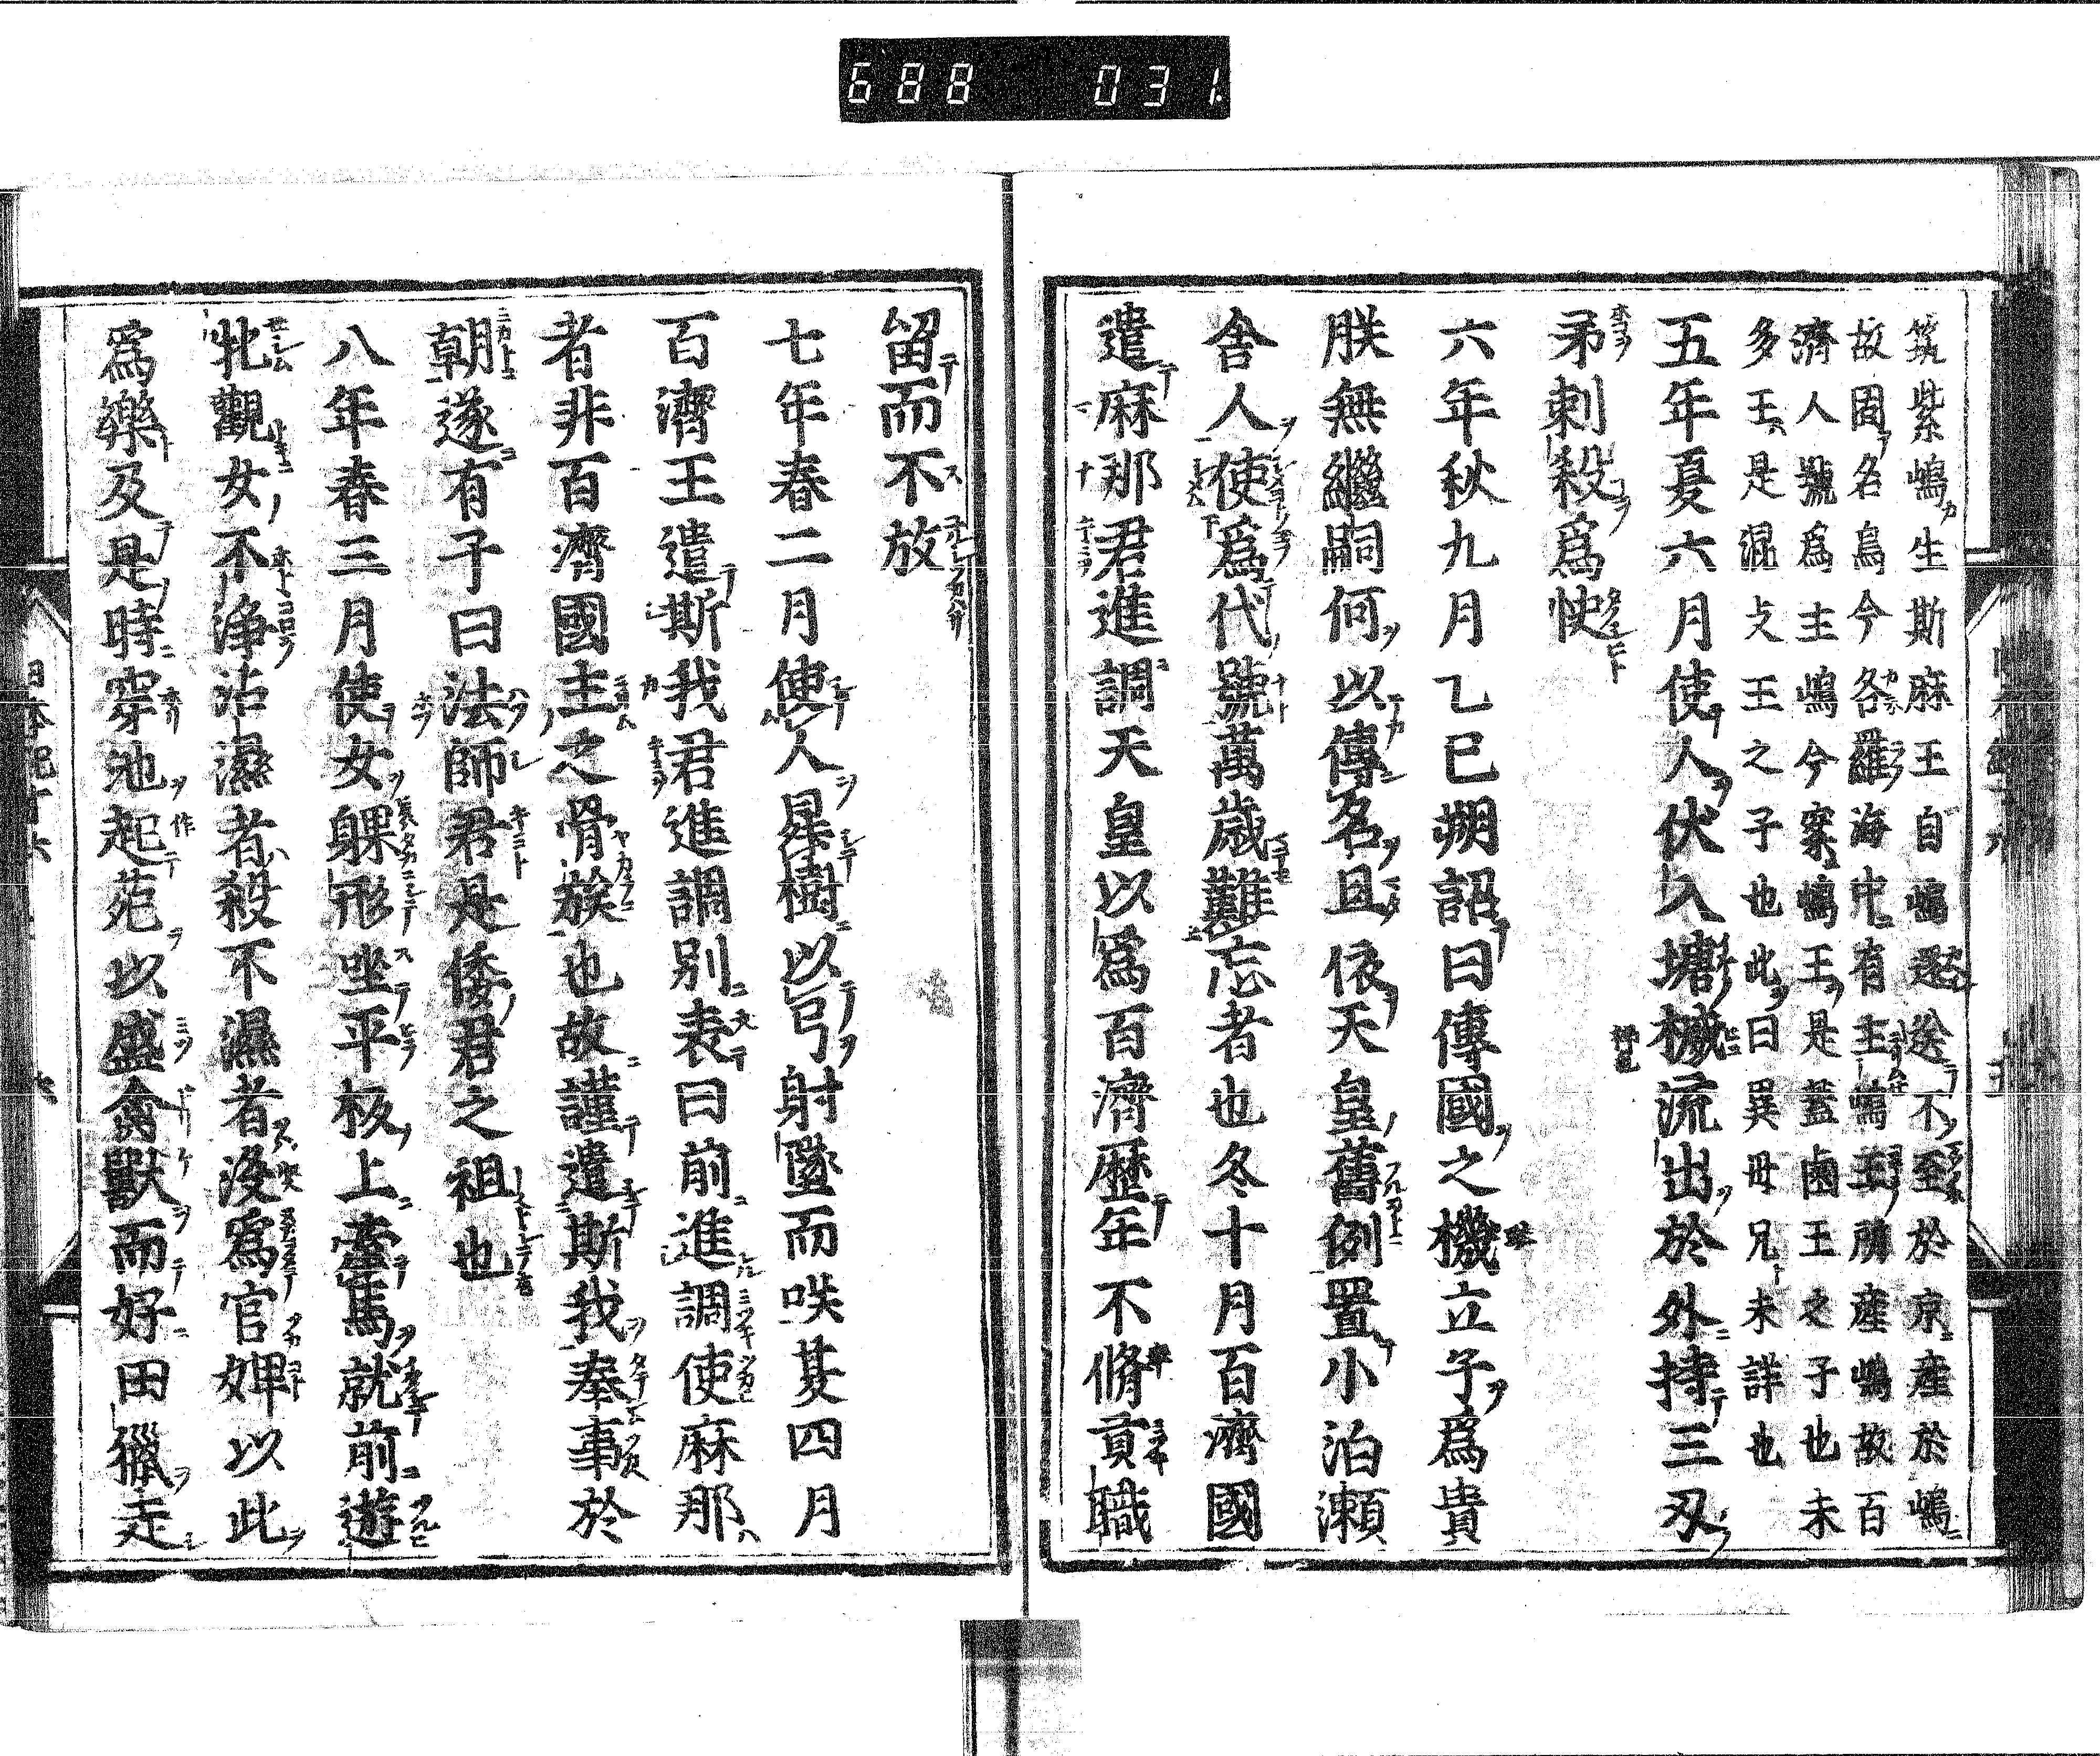 688 031
筑紫嶋生斯麻王自嶋還送不至於京産於嶋
故因名焉今各羅海中有主嶋王所産嶋故百
濟人號爲主嶋今案嶋王是蓋鹵王之子也未
多王是混攴王之子也此曰異母兄未詳也
五年夏六月使人伏入塘楲流出於外持三刃
矛刺殺爲快
六年秋九月乙巳朔詔曰傳國之機立子爲貴
朕無繼嗣何以傳名且依天皇舊例置小泊瀬
舎人使爲代號萬歳難忘者也冬十月百濟國
遣麻那君進調天皇以爲百濟歷年不脩貢職
留而不放
七年春二月使人昇樹以弓射墜而咲其四月
百濟王遣斯我君進調別表曰前進調使麻那
者非百濟國主之骨族也故謹遣斯我奉事於
朝遂有子曰法師君是倭君之祖也
八年春三月使女躶形坐平板上牽馬就前遊
牝觀女不浄沾濕者殺不濕者没爲官婢以此
爲樂及是時穿池起苑以盛禽獸而好田獵走